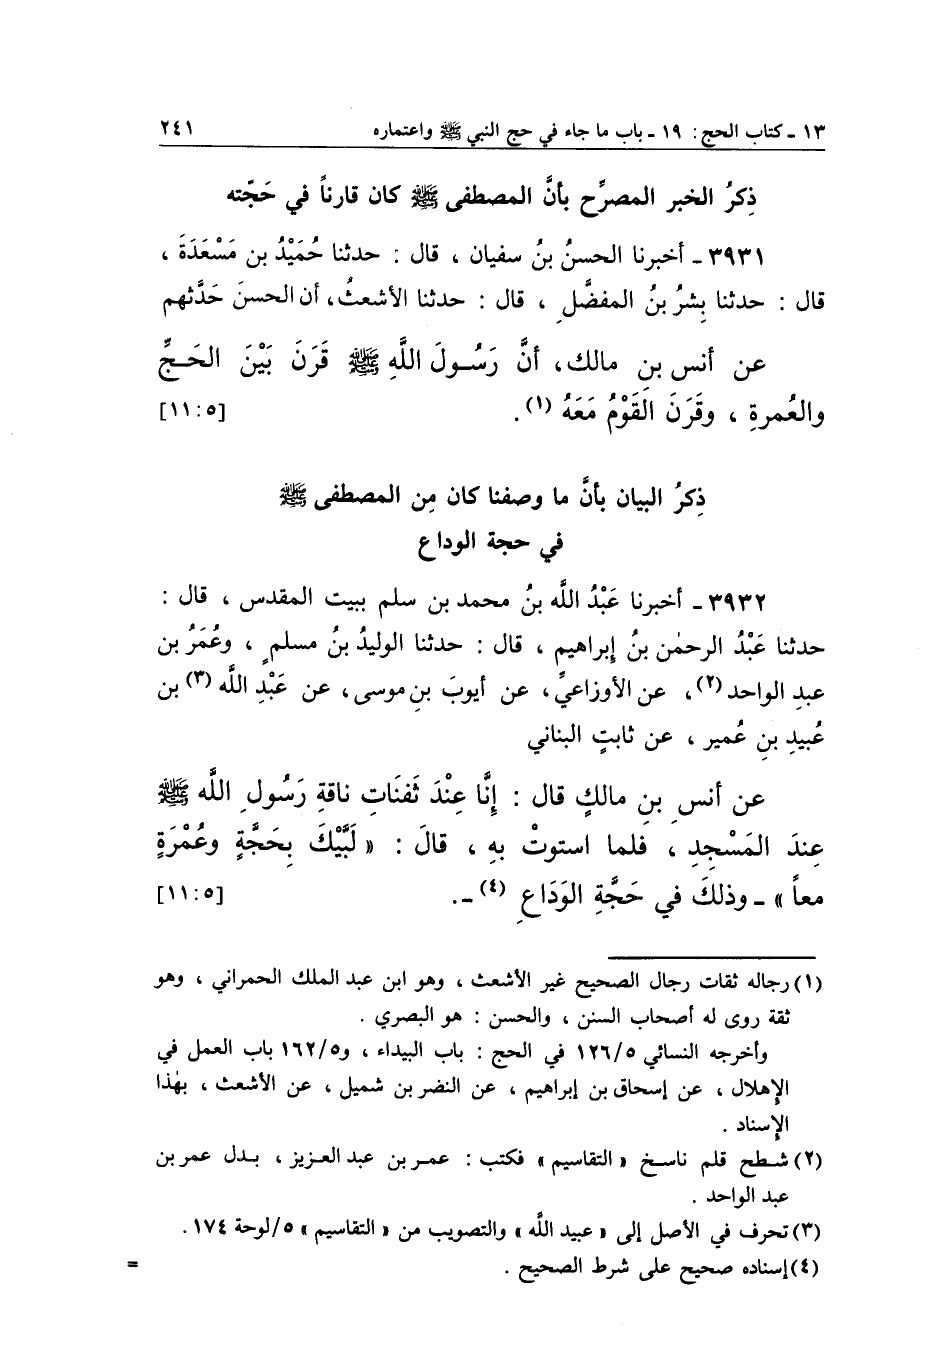 ١٣ ـ كتاب الحج: ١٩ ـ باب ما جاء في حج النبي ﷺ واعتماره ٢٤١
ذِكرُ الخبر المصرِّح بأنَّ المصطفى ﷺ كان قارناً في حَجّته
٣٩٣١ ـ أخبرنا الحسنُ بنُ سفيان ، قال : حدثنا حُمَيْدُ بن مَسْعَدَةَ ،
قال : حدثنا بِشرُ بنُ المفضَّلِ ، قال : حدثنا الأشعثُ، أن الحسنَ حَدَّثهم
عن أنس بنِ مالك، أنَّ رَسُولَ اللَّهِ ﷺ قَرَنَ بَيْنَ الحَجِّ
والعُمرةِ ، وقَرَنَ القَوْمُ مَعَهُ (١). [٥ : ١١]
ذِكرُ البيان بأنَّ ما وصفنا كان مِن المصطفى ﷺ
في حجة الوداع
٣٩٣٢ ـ أخبرنا عَبْدُ اللَّه بنُ محمد بن سلم ببيت المقدس ، قال :
حدثنا عَبْدُ الرحمٰن بنُ إبراهيم ، قال : حدثنا الوليدُ بنُ مسلمٍ ، وعُمَرُ بن
عبد الواحد (٢)، عن الأوزاعيِّ، عن أيوبَ بنِ موسى، عن عَبْدِ الله (٣) بن
عُبيدِ بنِ عُمير ، عن ثابتٍ البناني
عن أنس بنِ مالكٍ قال : إنَّا عِنْدَ ثَفنَاتِ ناقةِ رَسُولِ اللَّه ﷺ
عِندَ المَسْجِدِ ، فلما استوتْ بهِ ، قالَ : « لَبَّيْكَ بِحَجَّةٍ وعُمْرَةٍ
معاً » ـ وذلكَ في حَجَّةِ الوَدَاعِ (٤) ـ. [٥ : ١١]
(١) رجاله ثقات رجال الصحيح غير الأشعث ، وهو ابن عبد الملك الحمراني ، وهو
ثقة روى له أصحاب السنن ، والحسن : هو البصري .
وأخرجه النسائي ١٢٦/٥ في الحج : باب البيداء ، و١٦٢/٥ باب العمل في
الإهلال ، عن إسحاق بن إبراهيم ، عن النضر بن شميل ، عن الأشعث ، بهٰذا
الإسناد .
(٢) شطح قلم ناسخ « التقاسيم » فكتب : عمر بن عبد العزيز ، بدل عمر بن
عبد الواحد .
(٣) تحرف في الأصل إلى « عبيد اللَّه » والتصويب من « التقاسيم » ٥/لوحة ١٧٤ .
(٤) إسناده صحيح على شرط الصحيح . =